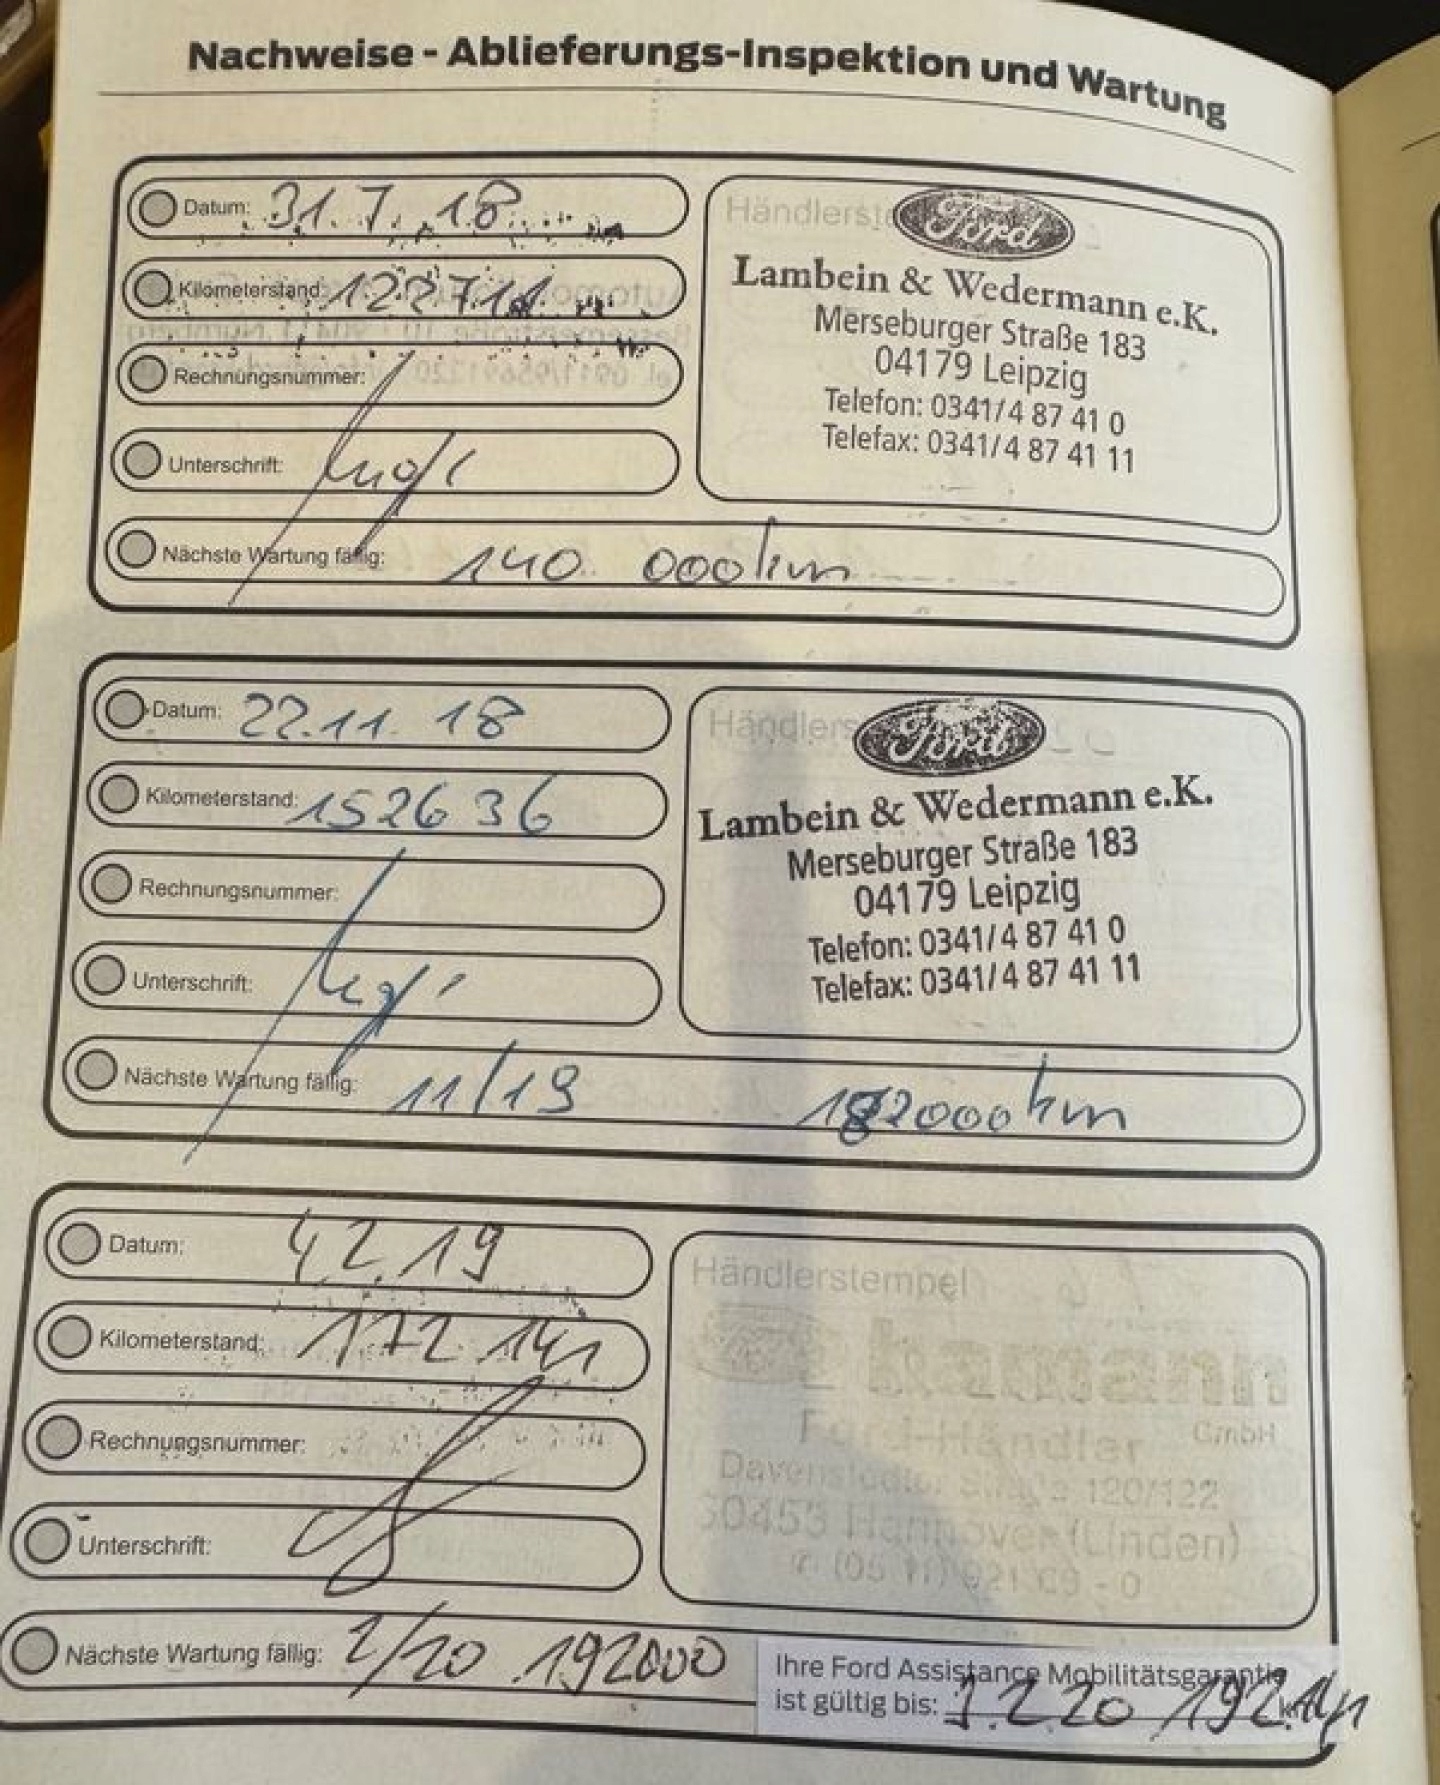 Nachweise - Ablieferungs-Inspektion und Wartung
Datum: 31.7.18
Kilometerstand: 122711
Rechnungsnummer:
Unterschrift:
Nächste Wartung fällig: 140 000 km
Ford
Lambein & Wedermann e.K.
Merseburger Straße 183
04179 Leipzig
Telefon: 0341/4 87 41 0
Telefax: 0341/4 87 41 11
Datum: 22.11.18
Kilometerstand: 152636
Rechnungsnummer:
Unterschrift:
Nächste Wartung fällig: 11/19 182000 km
Ford
Lambein & Wedermann e.K.
Merseburger Straße 183
04179 Leipzig
Telefon: 0341/4 87 41 0
Telefax: 0341/4 87 41 11
Datum: 4.2.19
Kilometerstand: 172 141
Rechnungsnummer:
Unterschrift:
Nächste Wartung fällig: 2/20 192000
Händlerstempel
GmbH
Ford-Händler
Davenstedter Straße 120/122
30453 Hannover (Linden)
Ihre Ford Assistance Mobilitätsgarantie
ist gültig bis: 3.2.20 / 192.141